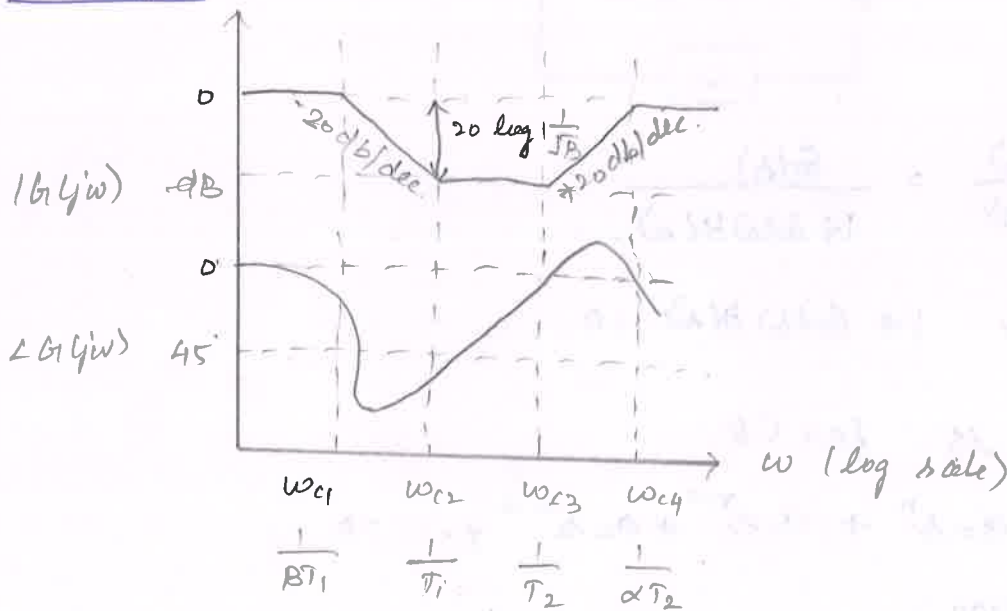 0
-20 db/dec.
20 log 1/√B
+20 db/dec.
|G(jω) -dB
0°
∠G(jω) 45°
ω (log scale)
ωc1 ωc2 ωc3 ωc4
1/BT1 1/T1 1/T2 1/αT2